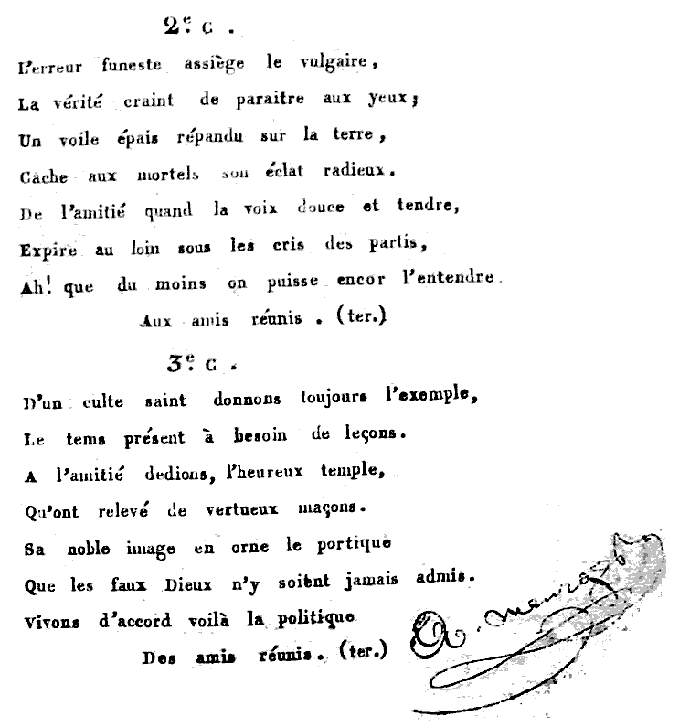 2.e C .
L'erreur funeste assiège le vulgaire,
La vérité craint de paraitre aux yeux;
Un voile épais répandu sur la terre,
Cache aux mortels son éclat radieux.
De l'amitié quand la voix douce et tendre,
Expire au loin sous les cris des partis,
Ah! que du moins on puisse encor l'entendre.
Aux amis réunis. (ter.)
3.e C .
D'un culte saint donnons toujours l'exemple,
Le tems présent à besoin de leçons.
A l'amitié dedions, l'heureux temple,
Qu'ont relevé de vertueux maçons.
Sa noble image en orne le portique
Que les faux Dieux n'y soient jamais admis.
Vivons d'accord voilà la politique
Des amis réunis. (ter.)